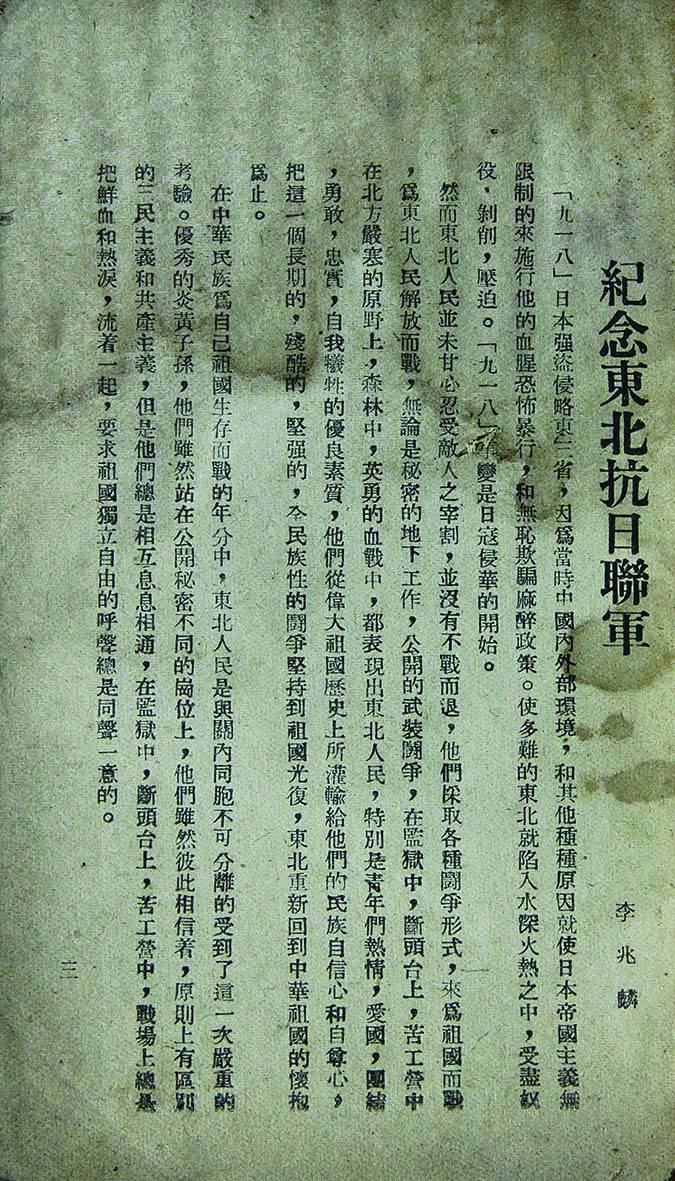 紀念東北抗日聯軍
李兆麟
「九一八」日本强盜侵略東三省，因爲當時中國內外部環境，和其他種種原因就使日本帝國主義無
限制的來施行他的血腥恐怖暴行，和無恥欺騙麻醉政策。使多難的東北就陷入水深火熱之中，受盡奴
役，剝削，壓迫。「九一八」事變是日寇侵華的開始。
然而東北人民並未甘心忍受敵人之宰割，並沒有不戰而退，他們採取各種鬪爭形式，來爲祖國而戰
，爲東北人民解放而戰，無論是秘密的地下工作，公開的武裝鬪爭，在監獄中，斷頭台上，苦工營中
在北方嚴寒的原野上，森林中，英勇的血戰中，都表現出東北人民，特別是青年們熱情，愛國，團結
，勇敢，忠實，自我犧牲的優良素質，他們從偉大祖國歷史上所灌輸給他們的民族自信心和自尊心，
把這一個長期的，殘酷的，堅强的，全民族性的鬪爭堅持到祖國光復，東北重新回到中華祖國的懷抱
爲止。
在中華民族爲自己祖國生存而戰的年分中，東北人民是與關內同胞不可分離的受到了這一次嚴重的
考驗。優秀的炎黃子孫，他們雖然站在公開秘密不同的崗位上，他們雖然彼此相信着，原則上有區別
的三民主義和共產主義，但是他們總是相互息息相通，在監獄中，斷頭台上，苦工營中，戰場上總是
把鮮血和熱淚，流着一起，要求祖國獨立自由的呼聲總是同聲一意的。
三